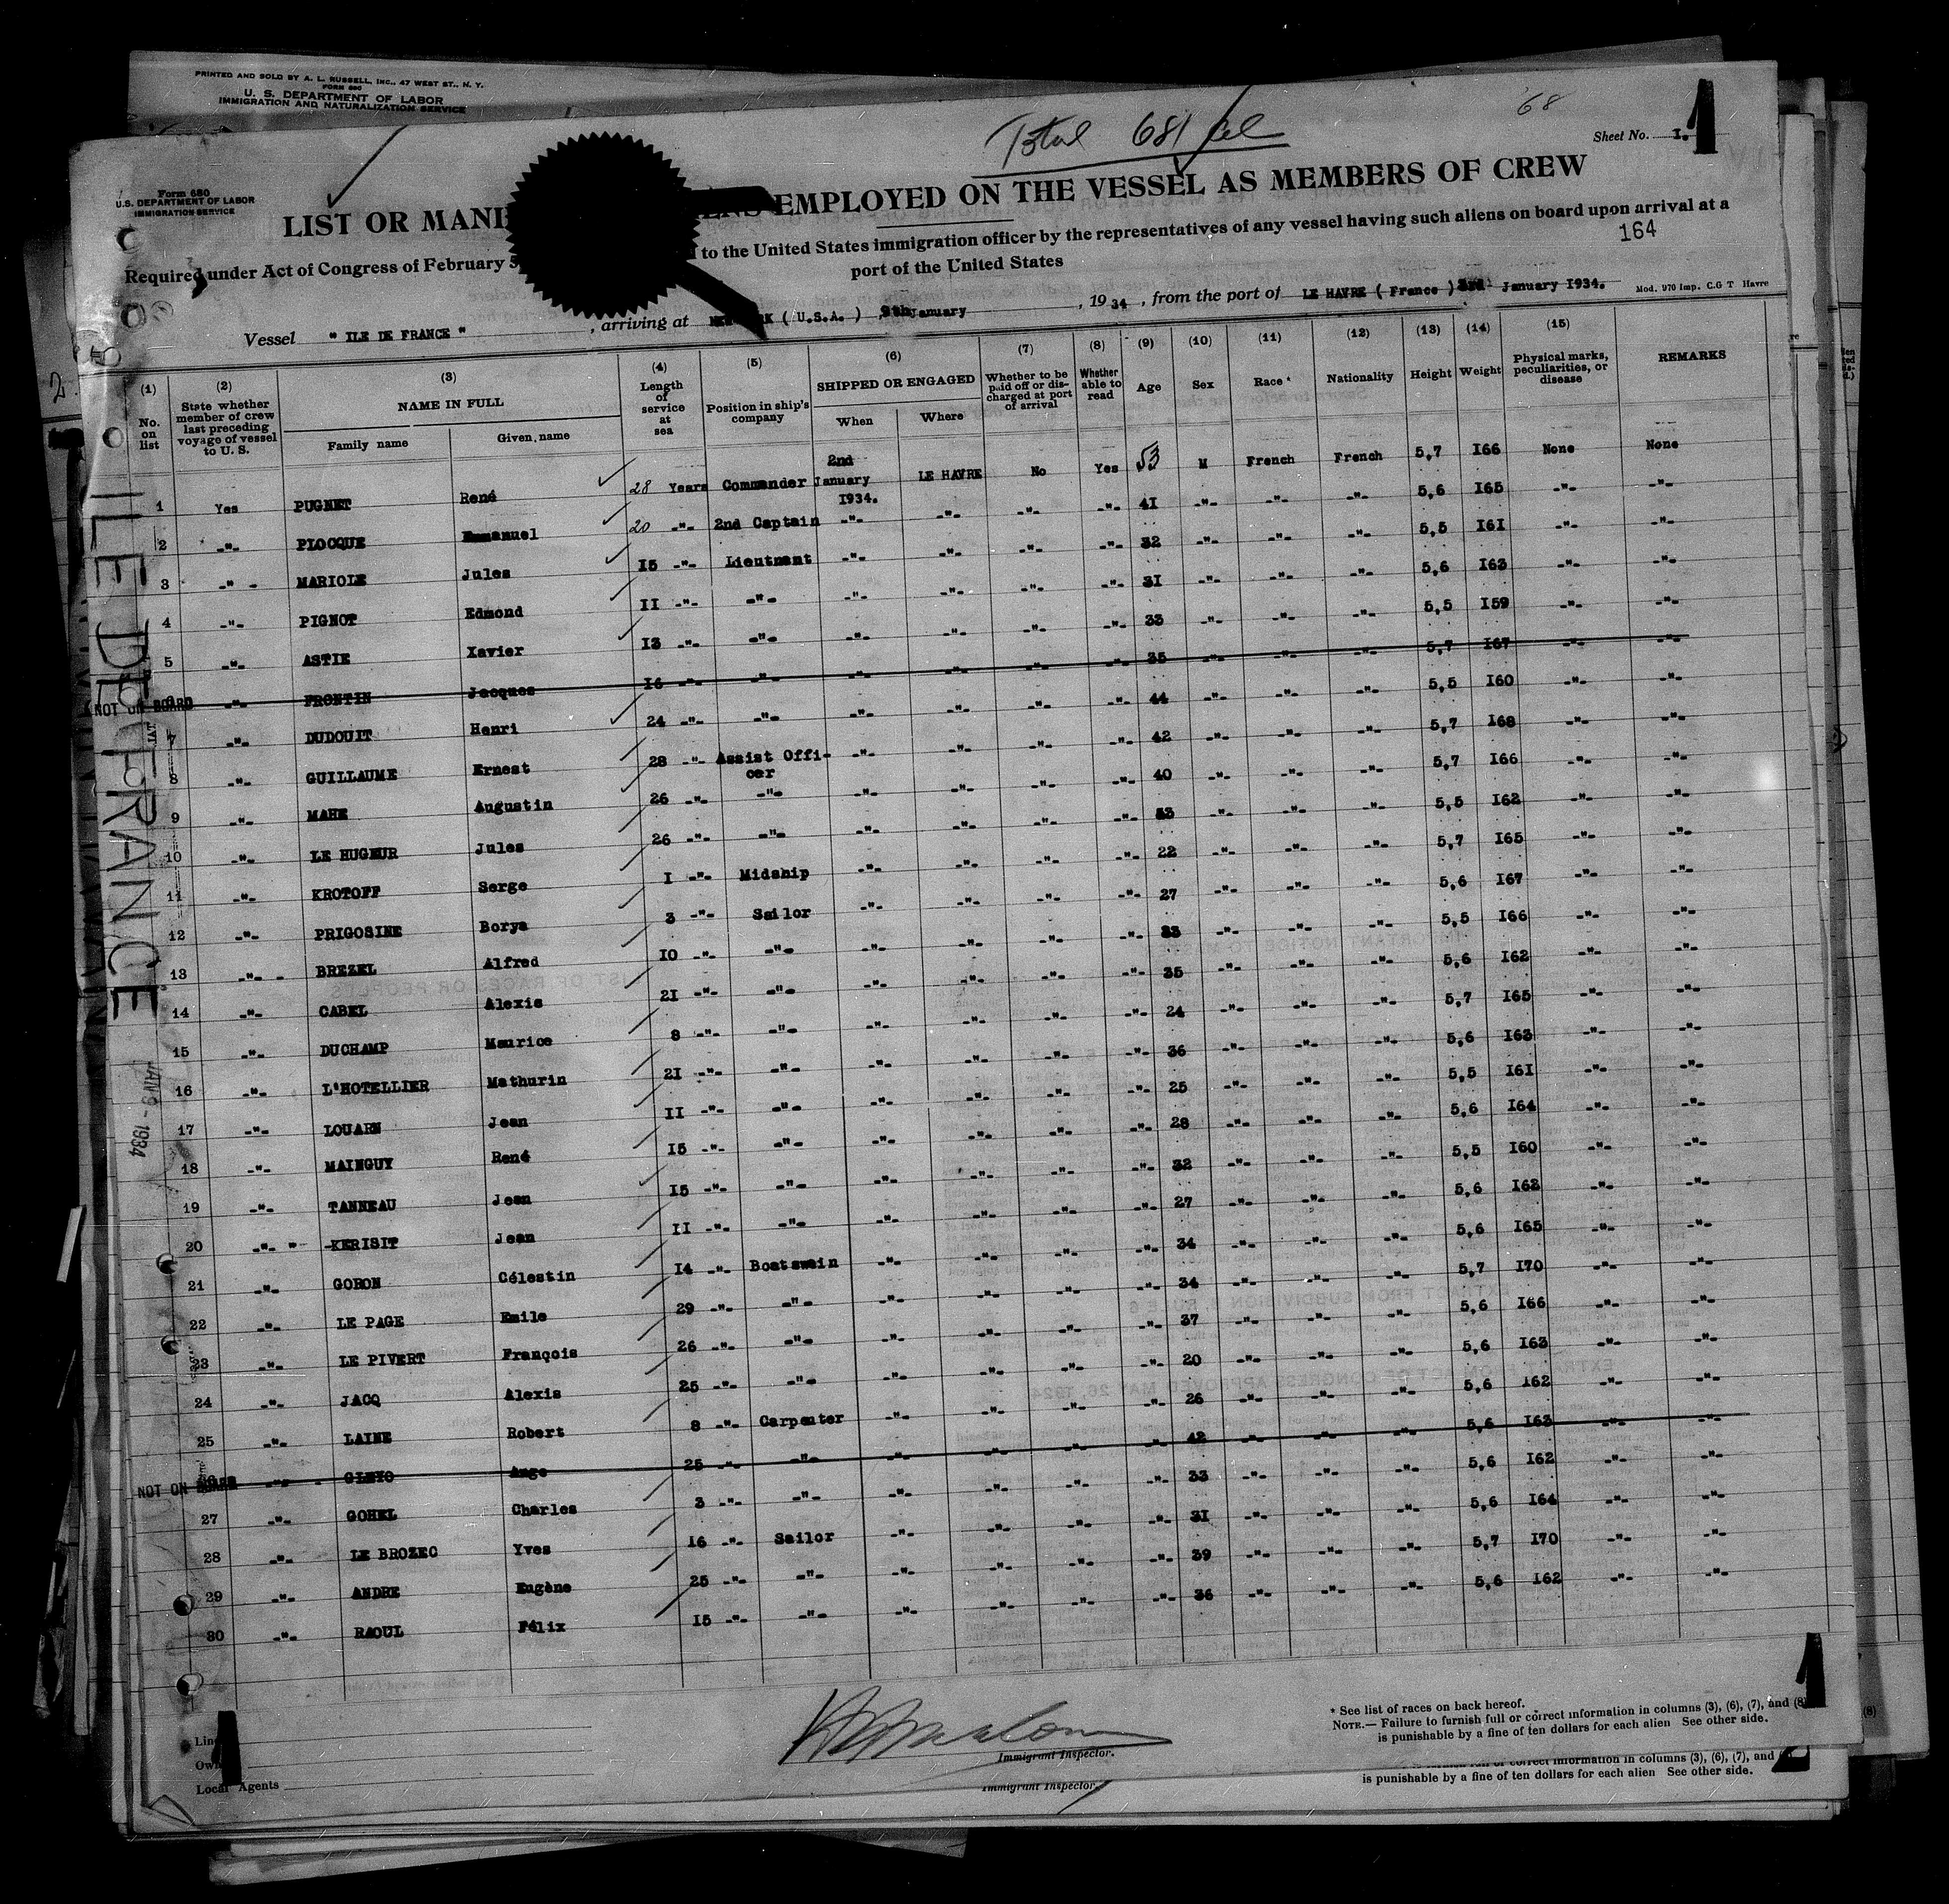 PRINTED AND SOLD BY A. L. RUSSELL, INC., 47 WEST ST., N. Y.
FORM 680
U. S. DEPARTMENT OF LABOR
IMMIGRATION AND NATURALIZATION SERVICE
68
Total 681
Sheet No. I. 1
Form 680
U.S. DEPARTMENT OF LABOR
IMMIGRATION SERVICE
LIST OR MANI EMPLOYED ON THE VESSEL AS MEMBERS OF CREW
Required under Act of Congress of February 5 to the United States immigration officer by the representatives of any vessel having such aliens on board upon arrival at a
port of the United States
164
Vessel " ILE DE FRANCE ", arriving at NEW YORK ( U.S.A. ) 9th January, 1934, from the port of LE HAVRE ( France ) 3rd January 1934.
Mod. 970 Imp. C.G T Havre
(1) No. on list
(2) State whether member of crew last preceding voyage of vessel to U. S.
(3) NAME IN FULL Family name Given name
(4) Length of service at sea
(5) Position in ship's company
(6) SHIPPED OR ENGAGED When Where
(7) Whether to be paid off or discharged at port of arrival
(8) Whether able to read
(9) Age
(10) Sex
(11) Race *
(12) Nationality
(13) Height
(14) Weight
(15) Physical marks, peculiarities, or disease
REMARKS
1 Yes PUGNET René 28 Years Commander 2nd January 1934. LE HAVRE No Yes 53 M French French 5,7 I66 None None
2 -"- PLOCQUE Emmanuel 20 -"- 2nd Captain -"- -"- -"- -"- 41 -"- -"- -"- 5,6 I65 -"- -"-
3 -"- MARIOLE Jules I5 -"- Lieutnant -"- -"- -"- -"- 32 -"- -"- -"- 5,5 I6I -"- -"-
4 -"- PIGNOT Edmond II -"- -"- -"- -"- -"- -"- 3I -"- -"- -"- 5,6 I63 -"- -"-
5 -"- ASTIE Xavier I3 -"- -"- -"- -"- -"- -"- 33 -"- -"- -"- 5,5 I59 -"- -"-
NOT ON BOARD -"- FRONTIN Jacques I6 -"- -"- -"- -"- -"- -"- 35 -"- -"- -"- 5,7 I67 -"- -"-
7 -"- DUDOUIT Henri 24 -"- -"- -"- -"- -"- -"- 44 -"- -"- -"- 5,5 I60 -"- -"-
8 -"- GUILLAUME Ernest 28 -"- Assist Officer -"- -"- -"- -"- 42 -"- -"- -"- 5,7 I68 -"- -"-
9 -"- MAHE Augustin 26 -"- -"- -"- -"- -"- -"- 40 -"- -"- -"- 5,7 I66 -"- -"-
10 -"- LE HUGEUR Jules 26 -"- -"- -"- -"- -"- -"- 53 -"- -"- -"- 5,5 I62 -"- -"-
11 -"- KROTOFF Serge I -"- Midship -"- -"- -"- -"- 22 -"- -"- -"- 5,7 I65 -"- -"-
12 -"- PRIGOSINE Borys 3 -"- Sailor -"- -"- -"- -"- 27 -"- -"- -"- 5,6 I67 -"- -"-
13 -"- BREZEL Alfred IO -"- -"- -"- -"- -"- -"- 33 -"- -"- -"- 5,5 I66 -"- -"-
14 -"- CABEL Alexis 2I -"- -"- -"- -"- -"- -"- 35 -"- -"- -"- 5,6 I62 -"- -"-
15 -"- DUCHAMP Maurice 8 -"- -"- -"- -"- -"- -"- 24 -"- -"- -"- 5,7 I65 -"- -"-
16 -"- L'HOTELLIER Mathurin 2I -"- -"- -"- -"- -"- -"- 36 -"- -"- -"- 5,6 I63 -"- -"-
17 -"- LOUARN Jean II -"- -"- -"- -"- -"- -"- 25 -"- -"- -"- 5,5 I6I -"- -"-
18 -"- MAINGUY René I5 -"- -"- -"- -"- -"- -"- 28 -"- -"- -"- 5,6 I64 -"- -"-
19 -"- TANNEAU Jean I5 -"- -"- -"- -"- -"- -"- 32 -"- -"- -"- 5,5 I60 -"- -"-
20 -"- KERISIT Jean II -"- -"- -"- -"- -"- -"- 27 -"- -"- -"- 5,6 I62 -"- -"-
21 -"- GORON Célestin I4 -"- Boatswain -"- -"- -"- -"- 34 -"- -"- -"- 5,6 I65 -"- -"-
22 -"- LE PAGE Emile 29 -"- -"- -"- -"- -"- -"- 34 -"- -"- -"- 5,7 I70 -"- -"-
23 -"- LE PIVERT François 26 -"- -"- -"- -"- -"- -"- 37 -"- -"- -"- 5,6 I66 -"- -"-
24 -"- JACQ Alexis 25 -"- -"- -"- -"- -"- -"- 20 -"- -"- -"- 5,6 I63 -"- -"-
25 -"- LAINE Robert 8 -"- Carpenter -"- -"- -"- -"- 26 -"- -"- -"- 5,6 I62 -"- -"-
NOT ON BOARD -"- Ange 25 -"- -"- -"- -"- -"- -"- 42 -"- -"- -"- 5,6 I63 -"- -"-
27 -"- GOHEL Charles 3 -"- -"- -"- -"- -"- -"- 33 -"- -"- -"- 5,6 I62 -"- -"-
28 -"- LE BROZEC Yves I6 -"- Sailor -"- -"- -"- -"- 3I -"- -"- -"- 5,6 I64 -"- -"-
29 -"- ANDRE Eugène 25 -"- -"- -"- -"- -"- -"- 39 -"- -"- -"- 5,7 I70 -"- -"-
30 -"- RAOUL Félix I5 -"- -"- -"- -"- -"- -"- 36 -"- -"- -"- 5,6 I62 -"- -"-
ILE DE FRANCE
JAN 9 - 1934
Immigrant Inspector.
* See list of races on back hereof.
NOTE.— Failure to furnish full or correct information in columns (3), (6), (7), and (8)
is punishable by a fine of ten dollars for each alien See other side.
Local Agents
Immigrant Inspector
correct information in columns (3), (6), (7), and
is punishable by a fine of ten dollars for each alien See other side.
2